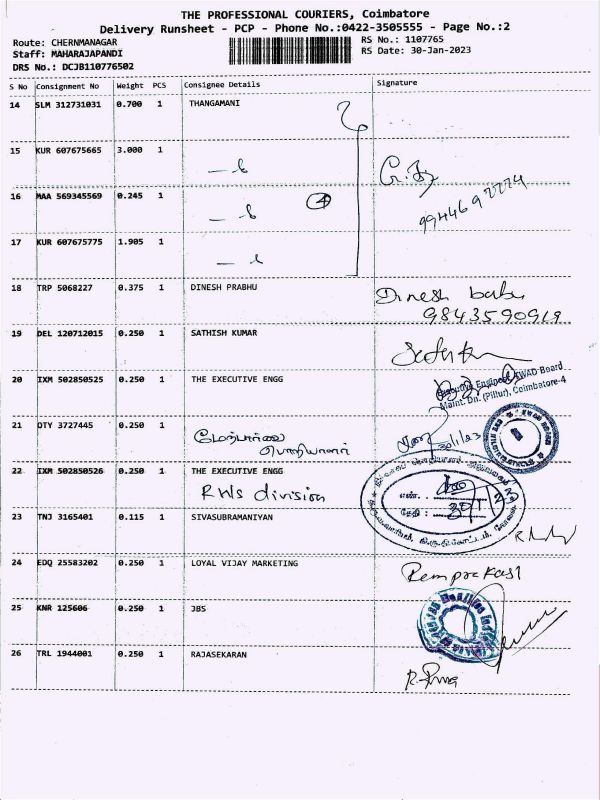 THE PROFESSIONAL COURIERS, Coimbatore
Delivery Runsheet - PCP - Phone No.:0422-3505555 - Page No.:2
Route: CHERNMANAGAR
RS No.: 1107765
Staff: MAHARAJAPANDI
RS Date: 30-Jan-2023
DRS No.: DCJB110776502
S No Consignment No Weight PCS Consignee Details Signature
14 SLM 312731031 0.700 1 THANGAMANI
15 KUR 607675665 3.000 1
16 MAA 569345569 0.245 1 4
9944697774
17 KUR 607675775 1.905 1
18 TRP 5068227 0.375 1 DINESH PRABHU
Dinesh babu
9843590919
19 DEL 120712015 0.250 1 SATHISH KUMAR
20 IXM 502850525 0.250 1 THE EXECUTIVE ENGG
Executive Engineer, TWAD Board
Maint. Dn. (Pillur), Coimbatore-4
21 OTY 3727445 0.250 1 மேற்பார்வை
பொறியாளர்
30/1/23
22 IXM 502850526 0.250 1 THE EXECUTIVE ENGG
RWS division
எண். :
தேதி : 30/1/23
23 TNJ 3165401 0.115 1 SIVASUBRAMANIYAN
24 EDQ 25583202 0.250 1 LOYAL VIJAY MARKETING
Remprakash
25 KNR 125606 0.250 1 JBS
26 TRL 1944001 0.250 1 RAJASEKARAN